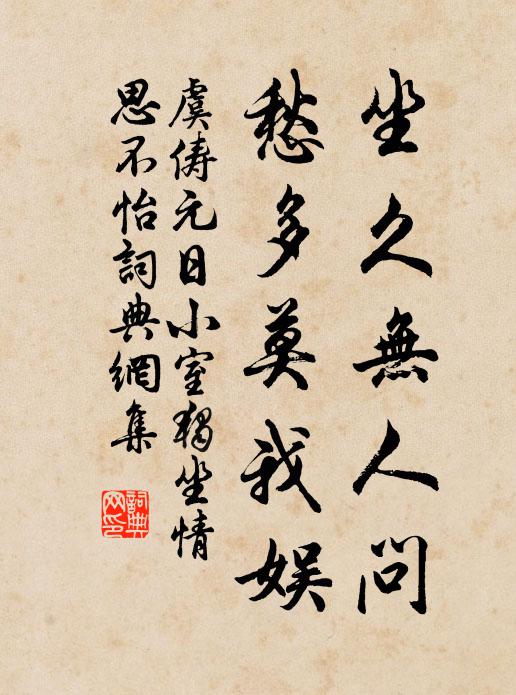 坐久無人問
愁多莫我娱
虞儔元日小室獨坐情
思不怡詞典網集
詞典
网印